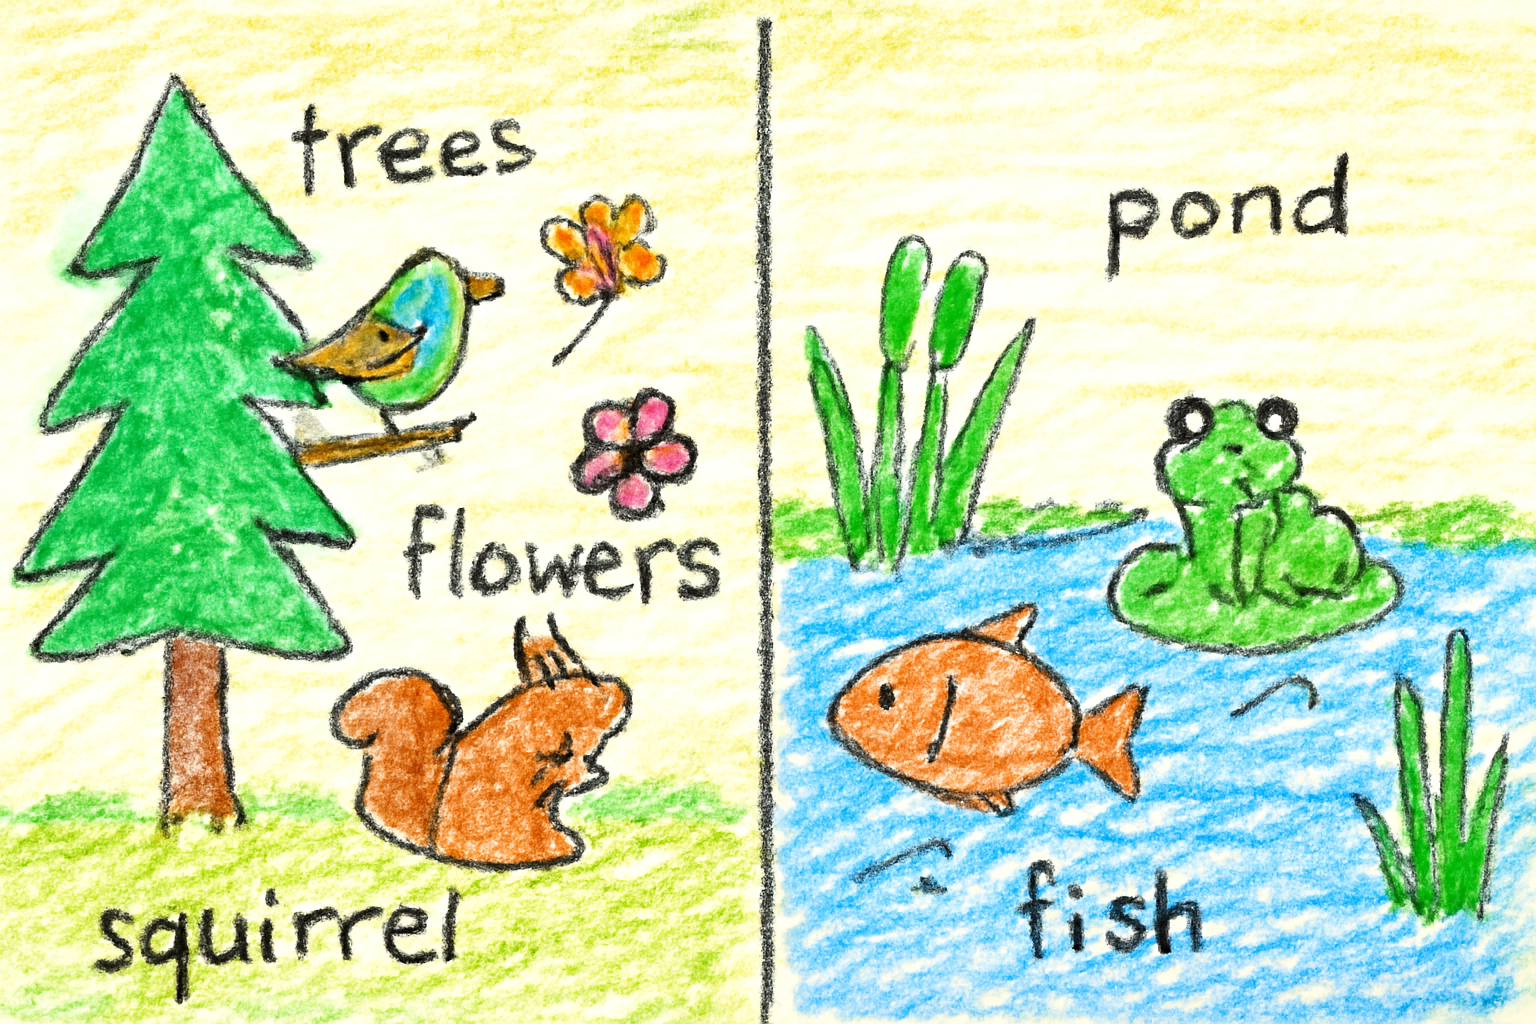 trees
flowers
squirrel
pond
fish